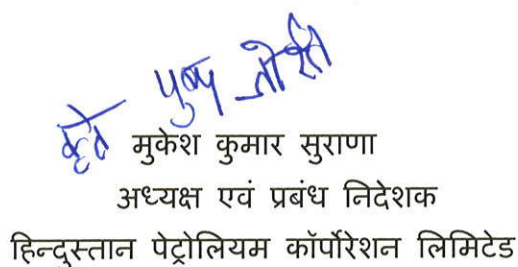 कृते पुष्प जोशी
मुकेश कुमार सुराणा
अध्यक्ष एवं प्रबंध निदेशक
हिन्दुस्तान पेट्रोलियम कॉर्पोरेशन लिमिटेड